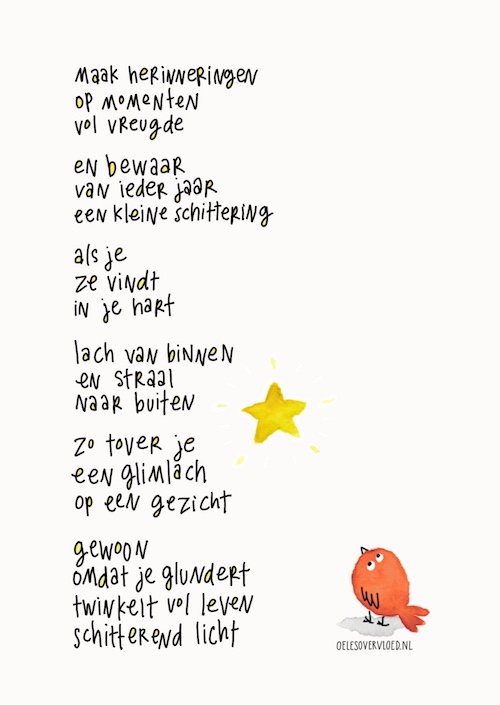 maak herinneringen
op momenten
vol vreugde
en bewaar
van ieder jaar
een kleine schittering
als je
ze vindt
in je hart
lach van binnen
en straal
naar buiten
zo tover je
een glimlach
op een gezicht
gewoon
omdat je glundert
twinkelt vol leven
schitterend licht
OELESOVERVLOED.NL